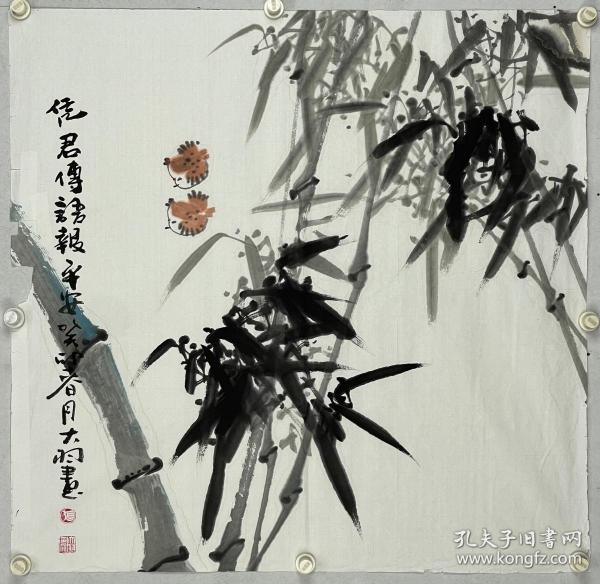 凭君傳語報平安癸卯春月大畫
孔夫子旧书网
www.kongfz.com